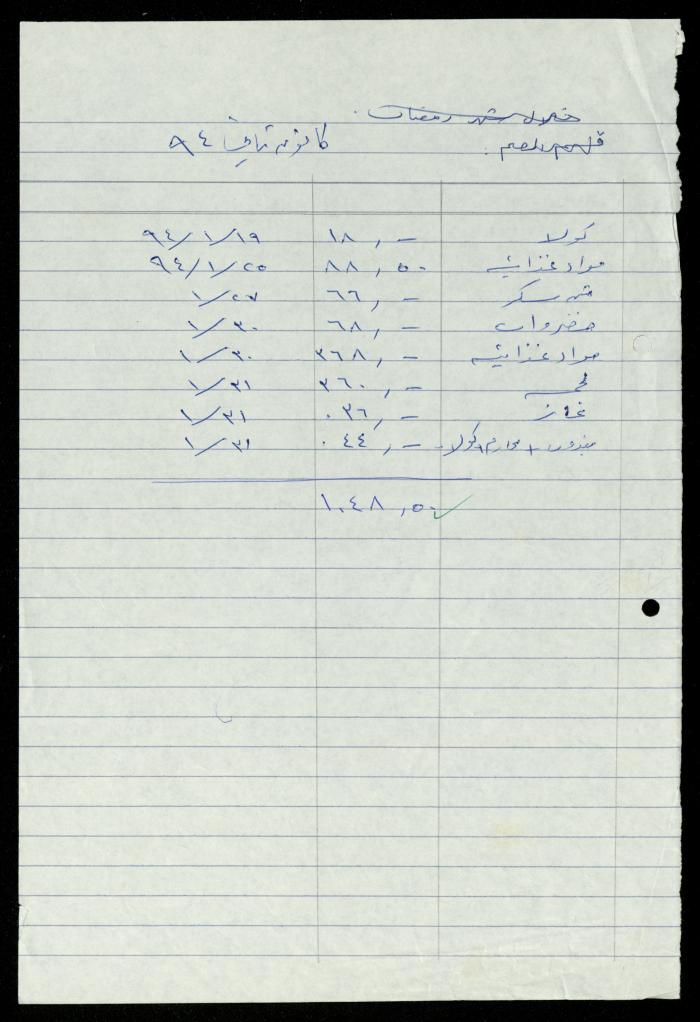 خلال شهر رمضان.
كانون ثاني ٩٤
كولا ١٨,- ٩٤/١/١٩
مواد غذائية ٨٨,٥٠ ٩٤/١/٢٥
سكر ٦٦,- ١/٢٧
خضروات ٦٨,- ١/٣٠
مواد غذائية ٣٦٨,- ١/٣٠
لحمه ٣٦٠,- ١/٣١
غاز ٠٣٦,- ١/٣١
+ محارم + كولا ٠٤٤,- ١/٣١
١٠٤٨,٥٠